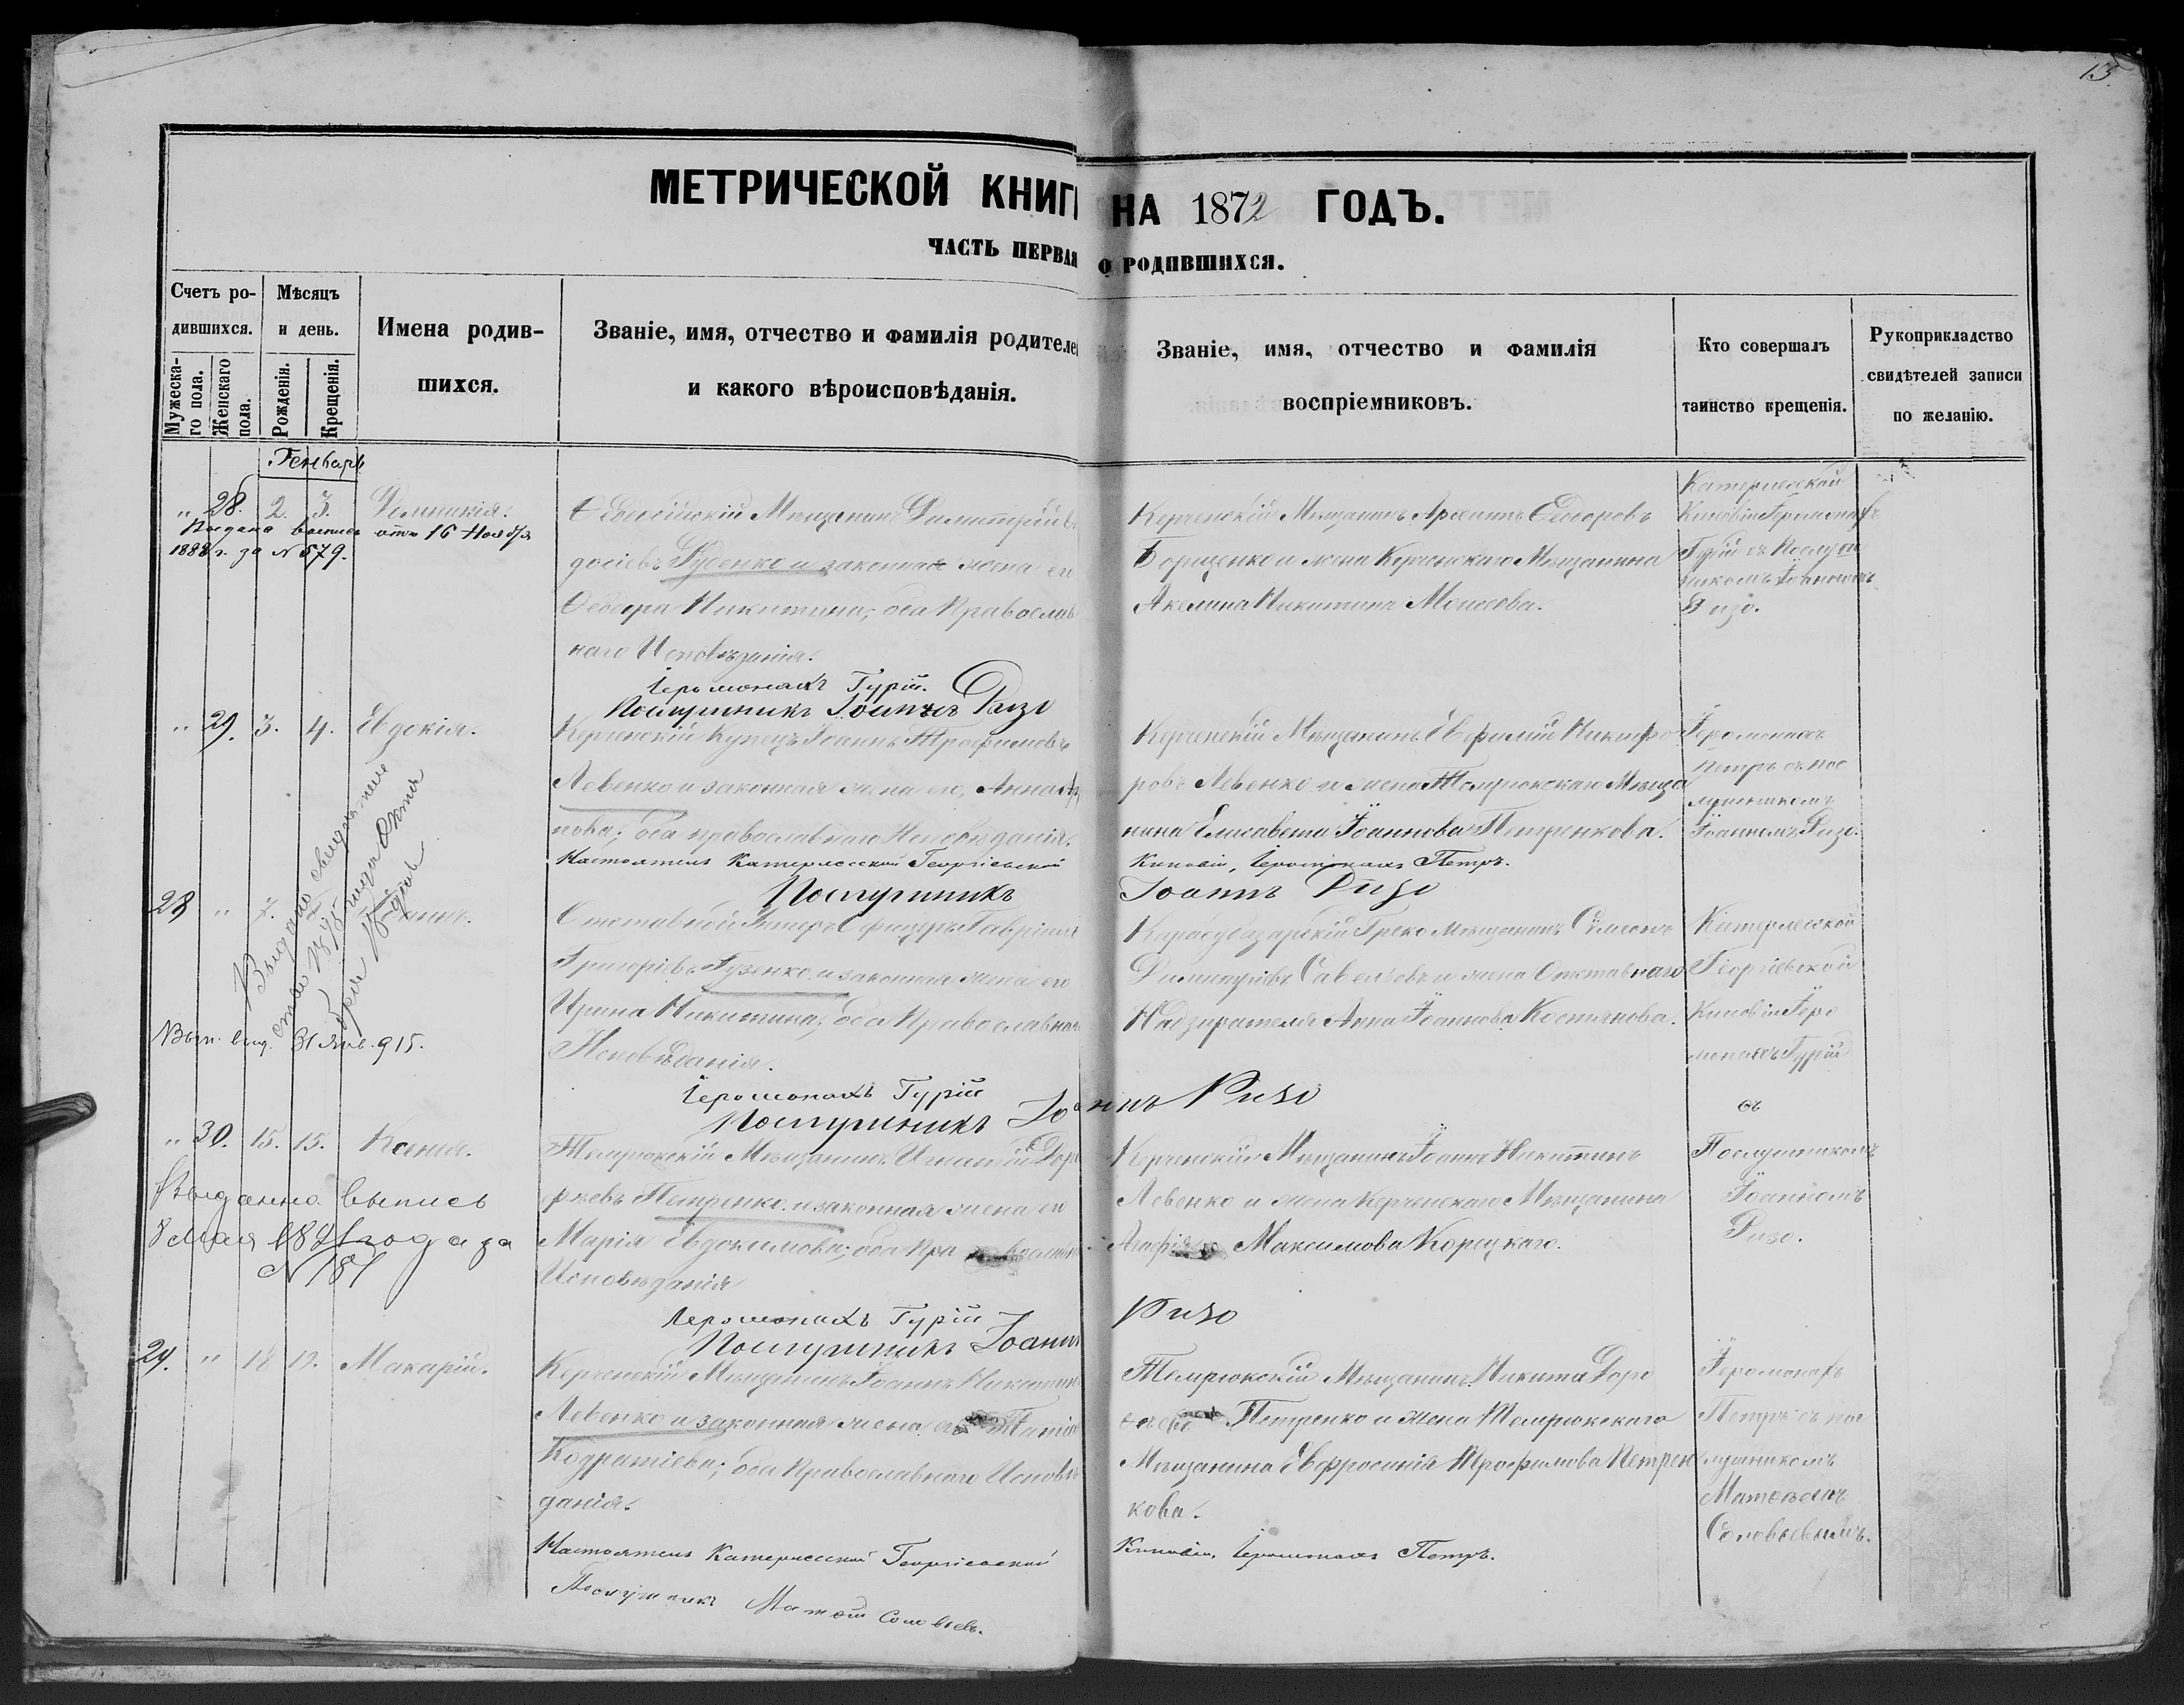 13
МЕТРИЧЕСКОЙ КНИГ НА 1872 ГОДЪ.
ЧАСТЬ ПЕРВАЯ О РОДИВШИХСЯ.
Счетъ ро-
дившихся.
Мужеска-
го пола.
Женскаго
пола.
Мѣсяцъ
и день.
Рожденія.
Крещенія.
Имена родив-
шихся.
Званіе, имя, отчество и фамилія родителе
и какого вѣроисповѣданія.
Званіе, имя, отчество и фамилія
воспріемниковъ.
Кто совершалъ
таинство крещенія.
Рукоприкладство
свидѣтелей записи
по желанію.
Генварь
„ 28. 2. 3. Домникія.
Выдана выпись от 16 Ноября
1888 г. за № 579.
Ѳеодосійскій Мѣщанинъ Димитрій
досіевъ Руденко и законная жена его
Ѳеодора Никитина; оба Православ
наго Исповѣданія.
Іеромонахъ Гурій.
Послушникъ Іоаннъ Ризо
Керченскій Мѣщанинъ Архипъ Ѳеодоровъ
Борщенко и жена Керченскаго Мѣщанина
Акелина Никитина Моисеева.
Катерлесской
Киновіи Іеромонахъ
Гурій съ Послуш
никомъ Іоанномъ
Ризо.
„ 29. 3. 4. Евдокія.
Керченскій Купецъ Іоаннъ Трофимовъ
Левенко и законная жена его, Анна
пова; оба православнаго Исповѣданія.
Настоятель Катерлесской Георгіевской
Киновіи, Іеромонахъ Петръ.
Послушникъ Іоаннъ Ризо
Керченскій Мѣщанинъ Евфимій Никифо
ровъ Левенко и жена Темрюкскаго Мѣща
нина Елисавета Іоаннова Петренкова.
Іеромонахъ
Петръ съ пос
лушникомъ
Іоанномъ Ризо.
Выдано свидѣтель
28 „ 7.
Отставной Унтеръ Офицеръ Гавріилъ
Григоріевъ Гузенко и законная жена его
Ирина Никитина; оба Православнаго
Исповѣданія.
Іеромонахъ Гурій
Послушникъ Іоаннъ Ризо
Карасубазарскій Греко Мѣщанинъ Симеонъ
Димитріевъ Савельевъ и жена Отставнаго
Надзирателя Анна Іоаннова Костюкова.
Катерлесской
Георгіевской
Киновіи Іеро
монахъ Гурій
съ
Послушникомъ
Іоанномъ
Ризо.
Вып. выд. 31 Янв. 915.
„ 30. 15. 15. Ксенія.
Выданна выпись
8 Мая 1881 года за
№ 181
Темрюкскій Мѣщанинъ Игнатій Доро
ѳѣевъ Петренко и законная жена его
Марія Евдокимова; оба Пра
Исповѣданія
Іеромонахъ Гурій
Послушникъ Іоаннъ Ризо
Керченскій Мѣщанинъ Іоаннъ Никитинъ
Левенко и жена Керченскаго Мѣщанина
Агафія Максимова Корецкаго.
29. „ 18 19. Макарій.
Керченскій Мѣщанинъ Іоаннъ Никитинъ
Левенко и законная жена его
Кодратіева; оба Православнаго Исповѣ
данія.
Настоятель Катерлесской Георгіевской
Киновіи, Іеромонахъ Петръ.
Послушникъ Матѳій Соловьевъ.
Темрюкскій Мѣщанинъ Никита Доро
Петренко и жена Темрюкскаго
Мѣщанина Евфросинія Трофимова Петрен
кова.
Іеромонахъ
Петръ съ пос
лушникомъ
Матѳѣемъ
Соловьевымъ.